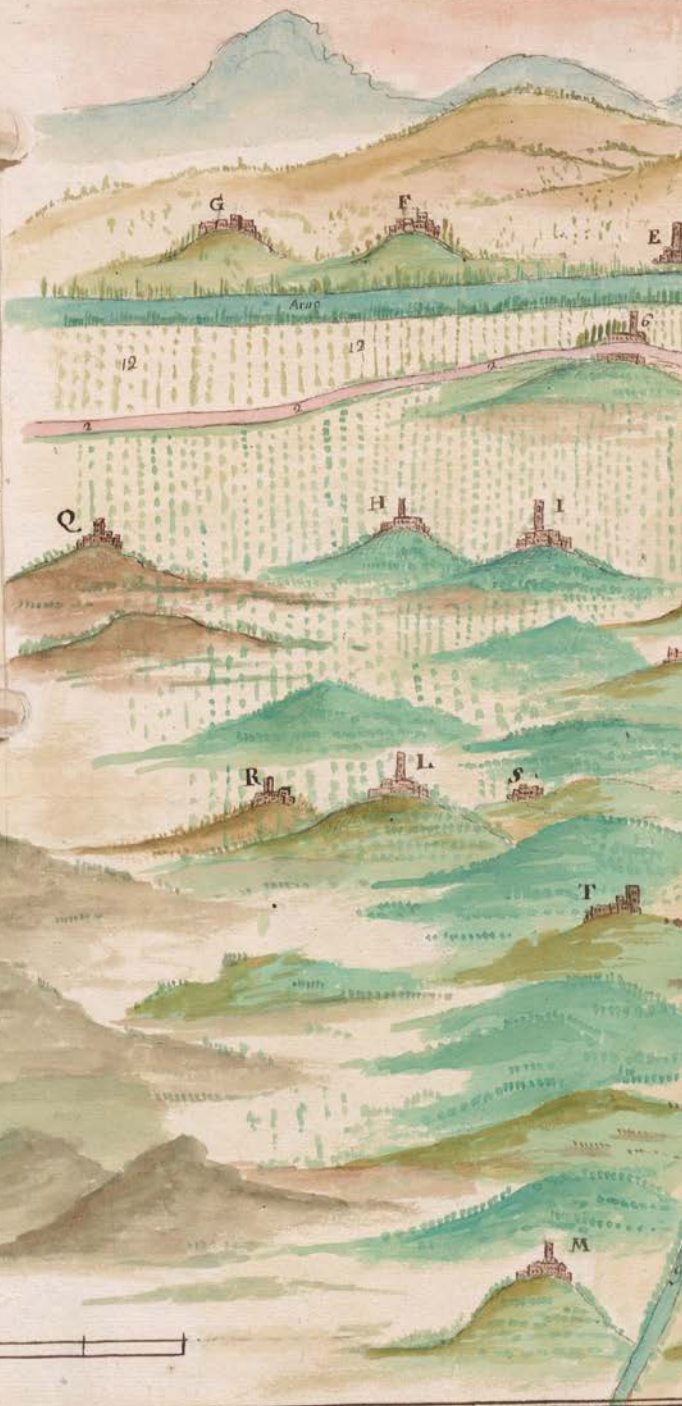 G F
E
Arno
6
12 12
2 2 2
Q H I
R L S
T
M
9